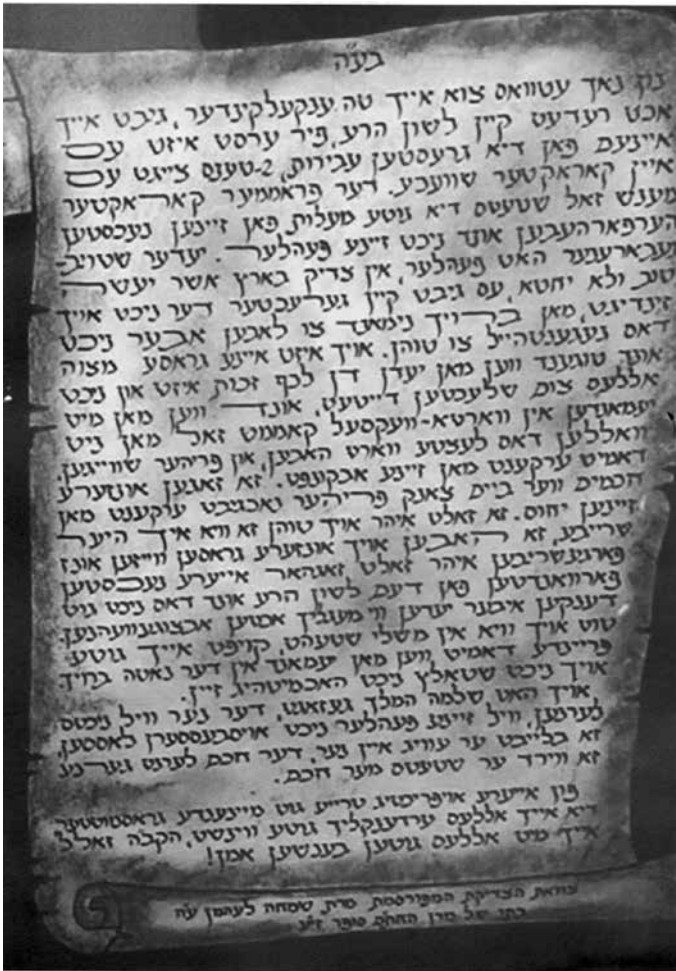 בע״ה
נון נאך עטוואס צוא אייך טה ענקעלקינדער, גיבט אייך
אכט רעדעט קיין לשון הרע, פיר ערסט איזט עס
איינעם פאן דיא גרעסטען עבירות, 2-טענס צייגט עס
איין קאראקטער שוועכע. דער פראממער קאראקטער
מענש זאל שטעטס דיא גוטע מעלות, פאן זיינען נעכסטען
הערפארהעבען אונד ניכט זיינע פעהלער. יעדער שטויב-
געבארענער האט פעהלער, אין צדיק בארץ אשר יעשה
טוב ולא יחטא, עס גיבט קיין גערעכטער דער ניכט אויך
זינדיגט, מאן ברויך נימאנד צו לאבען אבער ניכט
דאס געגענטהייל צו טוהן. אויך איזט איינע גראסע מצוה
אונד טוגענד ווען מאן יעדן דן לכף זכות איזט און ניכט
אללעס צום שלעכטען דייטעט, אונד ווען מאן מיט
יעמאנדען אין ווארטא-וועקסעל קאממט זאל מאן ניט
וואללען דאס לעצטע ווארט האבען, און פריהער שווייגען.
דאמיט ערקענט מאן זיינע אבקונפט. זא זאגען אונזערע
חכמים ווער ביים צאנק פריהער נאכגיבט ערקענט מאן
זיינען יחוס. זא זאלט איהר אויך טוהן זא וויא איך היער
שרייבע, זא האבען אויך אונזערע גראסען ווייזען אונז
פארגעשריבען איהר זאלט זאגהאר אייערע נעכסטען
פארוואנדטען פאן דעם לשון הרע אונד דאס ניכט גוט
דענקען איבער יעדען ווי מעגליך אכטען אבצוגעוועהנען.
טוט אויך וויא אין משלי שטעהט, קויפט אייך גוטע
פריינדע דאמיט ווען מאן יעמאנד אין דער נאטה ברויך
אויך ניכט שטאלץ ניכט האכמיטהיג זיין.
אויך האט שלמה המלך געזאגט, דער נער וויל ניכטס
לערנען, וויל זיינע פעהלער ניכט אויסבעסערן לאססען,
זא בלייבט ער עוויג איין נער, דער חכם לערנט גערנע
זא ווירד ער שטעטס מער חכם.
פון אייערע אויפריכטיג טרייע גוט מיינענדע גראסמוטטער
דיא אייך אללעס ערדענקליך גוטע ווינשט, הקב״ה זאלל
אייך מיט אללעס גוטען בענשען אמן!
צוואת הצדיקת המפורסמת מרת שמחה לעהמן ע״ה
בתו של מרן החת״ם סופר זי״ע